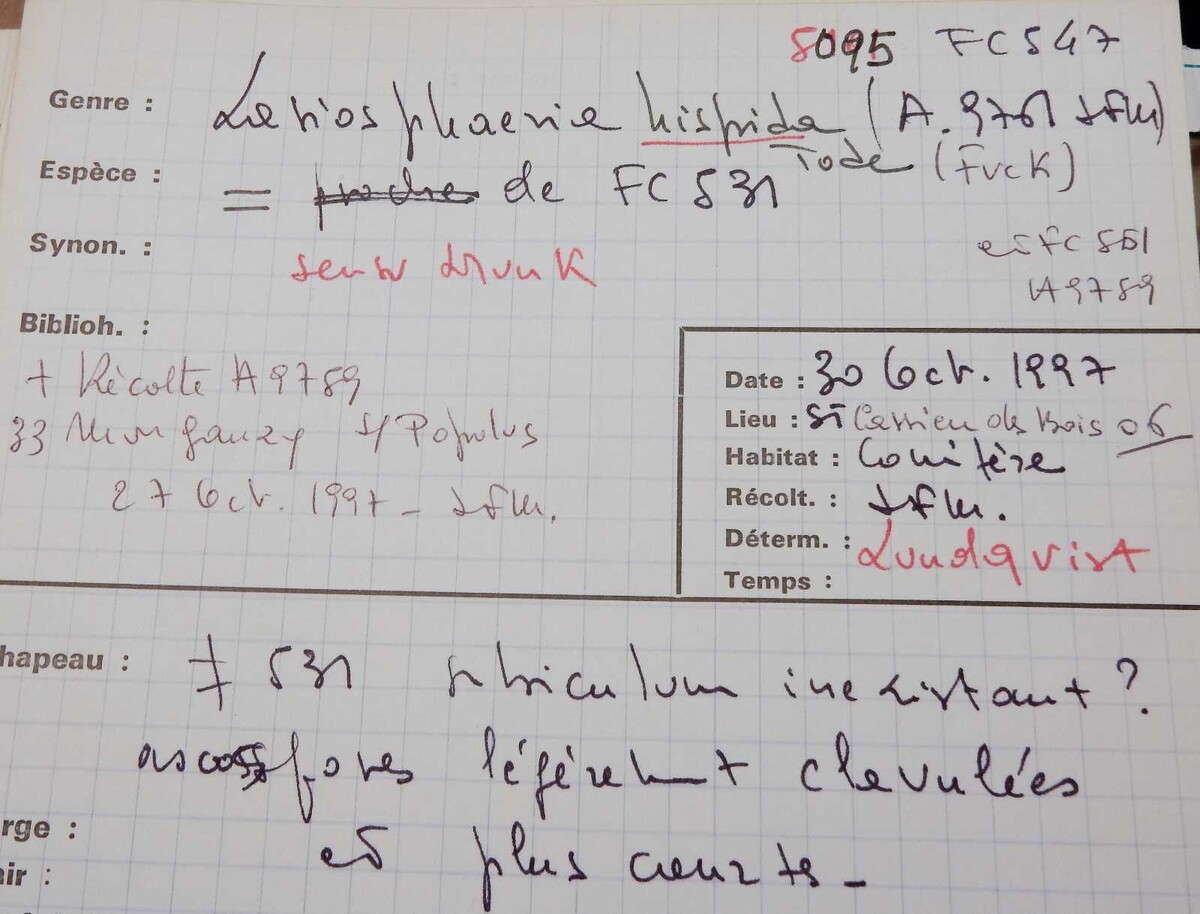 8095 FC 547
Genre : Lasiosphaeria hispida (A. 9761 JFM)
Tode (Fuck)
Espèce : = proche de FC 531
Synon. : sensu
et FC 551
A9789
Biblioh. :
+ Récolte A9789
33 s/ Populus
27 Oct. 1997 - JFM.
Date : 30 Oct. 1997
Lieu : St Cassien des Bois 06
Habitat : Conifère
Récolt. : JFM.
Déterm. : Lundqvist
Temps :
hapeau : ≠ 531 subiculum inexistant ?
ascospores légérement clavulées
rge :
et plus courtes -
air :